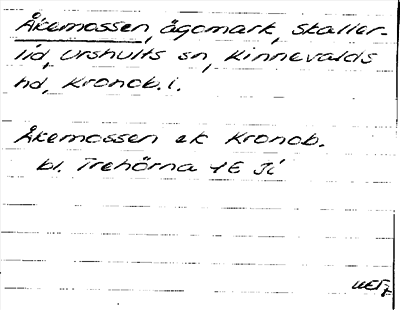 Åkemossen, ägomark, Skaller-
lid, Urshults sn, Kinnevalds
hd, Kronob. l.
Åkemossen ek Kronob.
bl. Trehörna 4E Ji